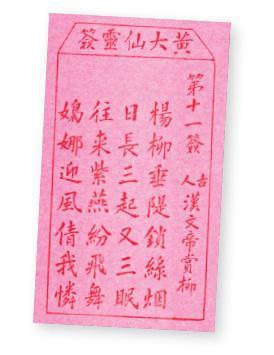 黃大仙靈簽
第十一簽
古人漢文帝賞柳
楊柳垂隄鎖綠烟
日長三起又三眠
往来紫燕紛飛舞
嬝娜迎風倩我憐